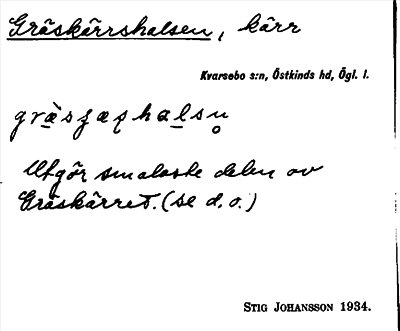 Gräskärrshalsen, kärr
Kvarsebo s:n, Östkinds hd, Ögl. l.
Utgör smalaste delen av
Gräskärret. (se d. o.)
STIG JOHANSSON 1934.